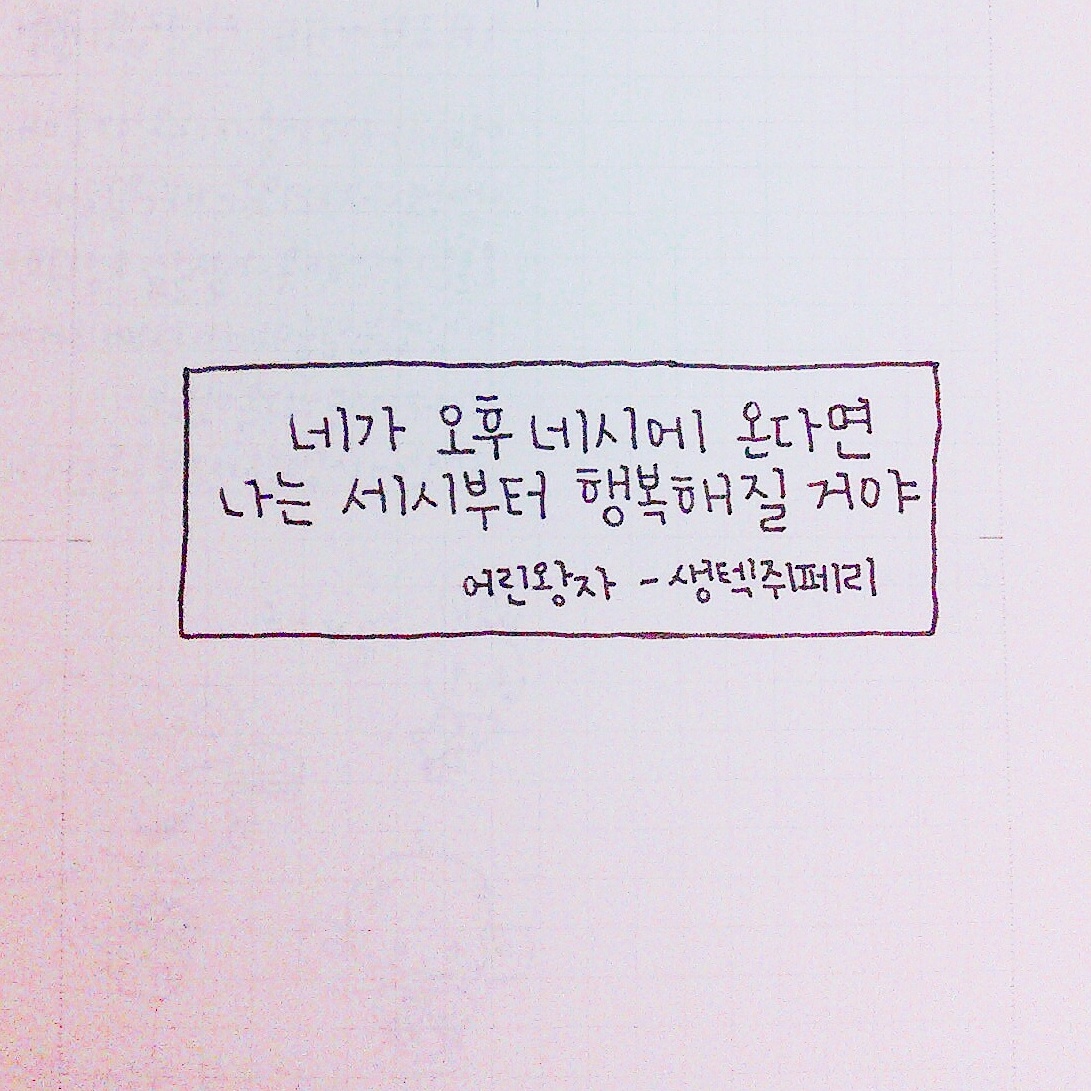 네가 오후 네시에 온다면
나는 세시부터 행복해질 거야
어린왕자 - 생텍쥐페리